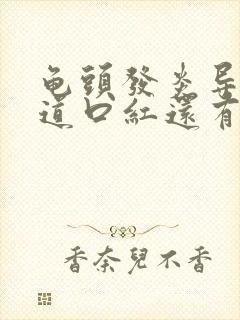 龟頭發炎导
道口紅還有
香奈兒不香